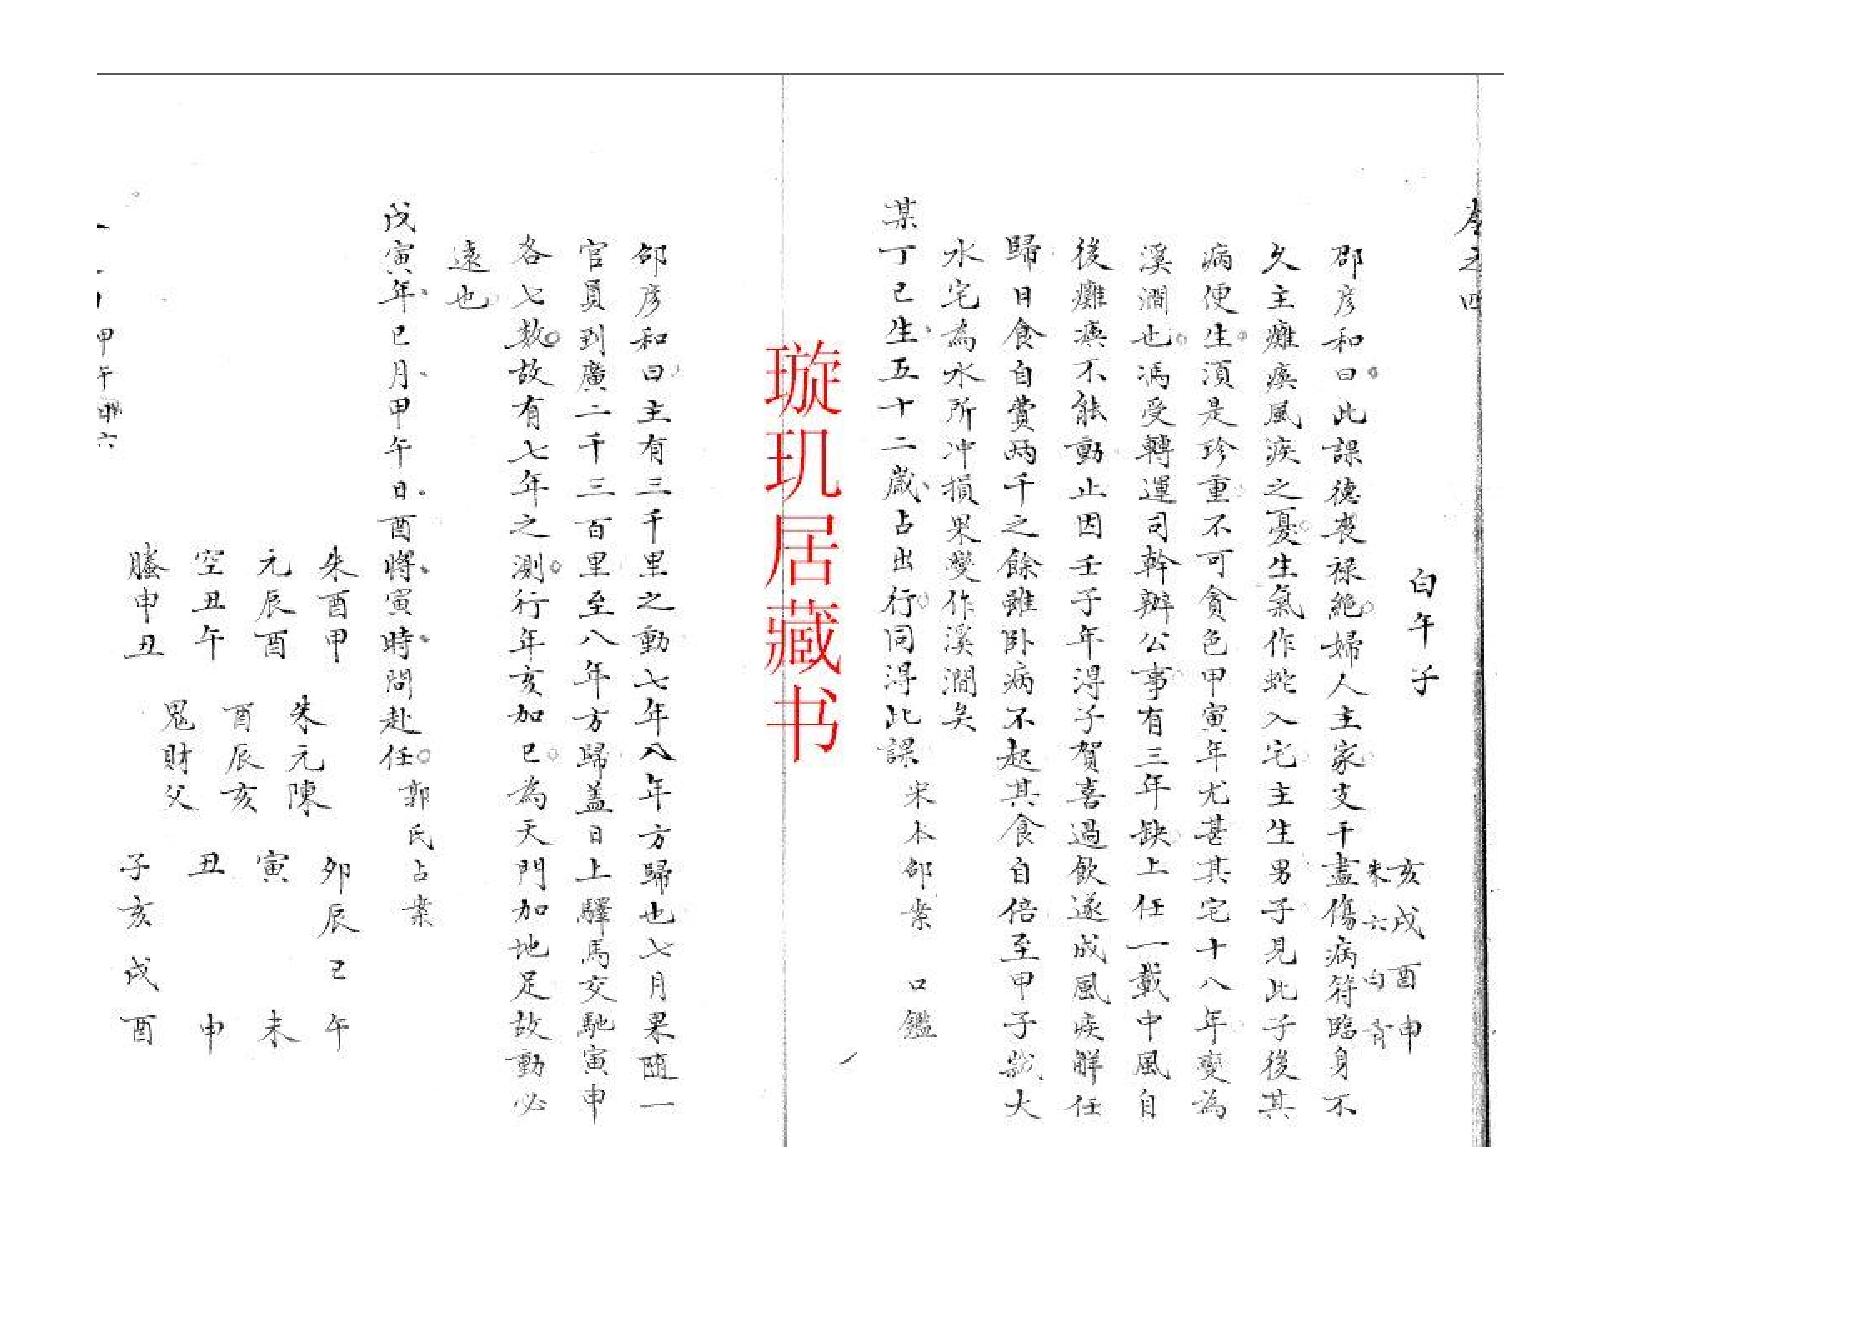 白午子
亥戌酉申
朱六白
邵彦和曰此課德喪禄絕婦人主家支干盡傷病符臨身不
久主癱瘓風疾之憂生氣作蛇入宅主生男子見此子後其
病便生湏是珍重不可貪色甲寅年尤甚其宅十八年變為
溪澗也馮受轉運司幹辦公事有三年缺上任一載中風自
後癱瘓不能動止因壬子年淂子賀喜過飲遂成風疾解任
歸日食自賞兩千之餘雖卧病不起其食自倍至甲子歲大
水宅為水所冲損果變作溪澗矣
某丁己生五十二歲占出行同淂此課 宋本邵案 口鑑
邵彦和曰主有三千里之動七年八年方歸也七月果隨一
官員到廣二千三百里至八年方歸蓋日上驛馬交馳寅申
各七数故有七年之測行年亥加巳為天門加地足故動必
遠也
戊寅年巳月甲午日酉將寅時問赴任 郭氏占案
朱酉甲 朱元陳 卯辰巳午
元辰酉 酉辰亥 寅 未
空丑午 鬼財父 丑 申
螣申丑 子亥戌酉
甲午
六
璇玑居藏书